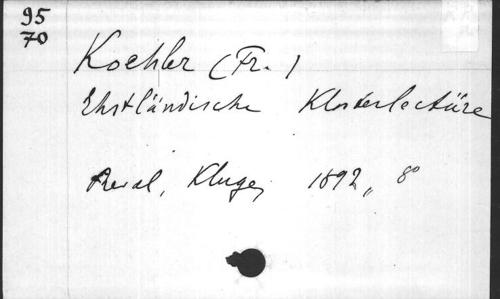 95
70
Koehler (Fr.)
Ehstländische Klosterlectüre
Reval, Kluge, 1892, 8°